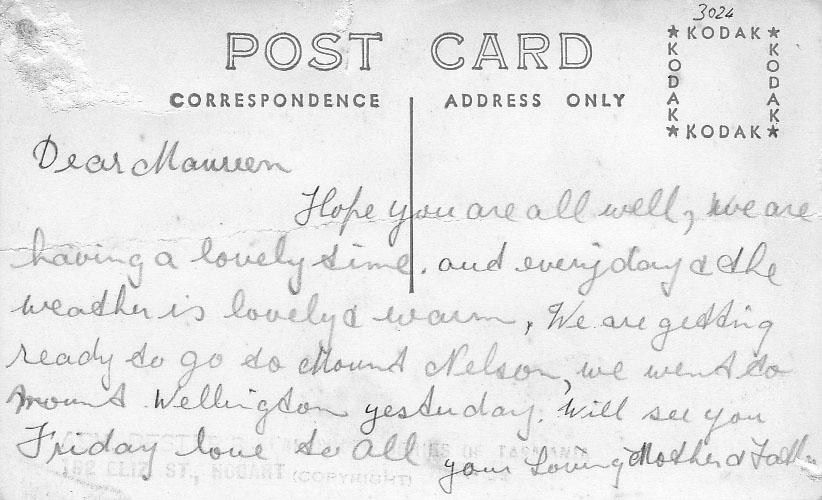 3024
POST CARD
CORRESPONDENCE ADDRESS ONLY
★KODAK★
KODAK
KODAK
★KODAK★
Dear Maureen
Hope you are all well, we are
having a lovely time. and everyday & the
weather is lovely & warm, We are getting
ready to go to Mount Nelson, we went to
mount Wellington yesterday. Will see you
Friday love to all your Loving Mother & Father
OF TASMANIA
182 ELIZ ST., HOBART (COPYRIGHT)